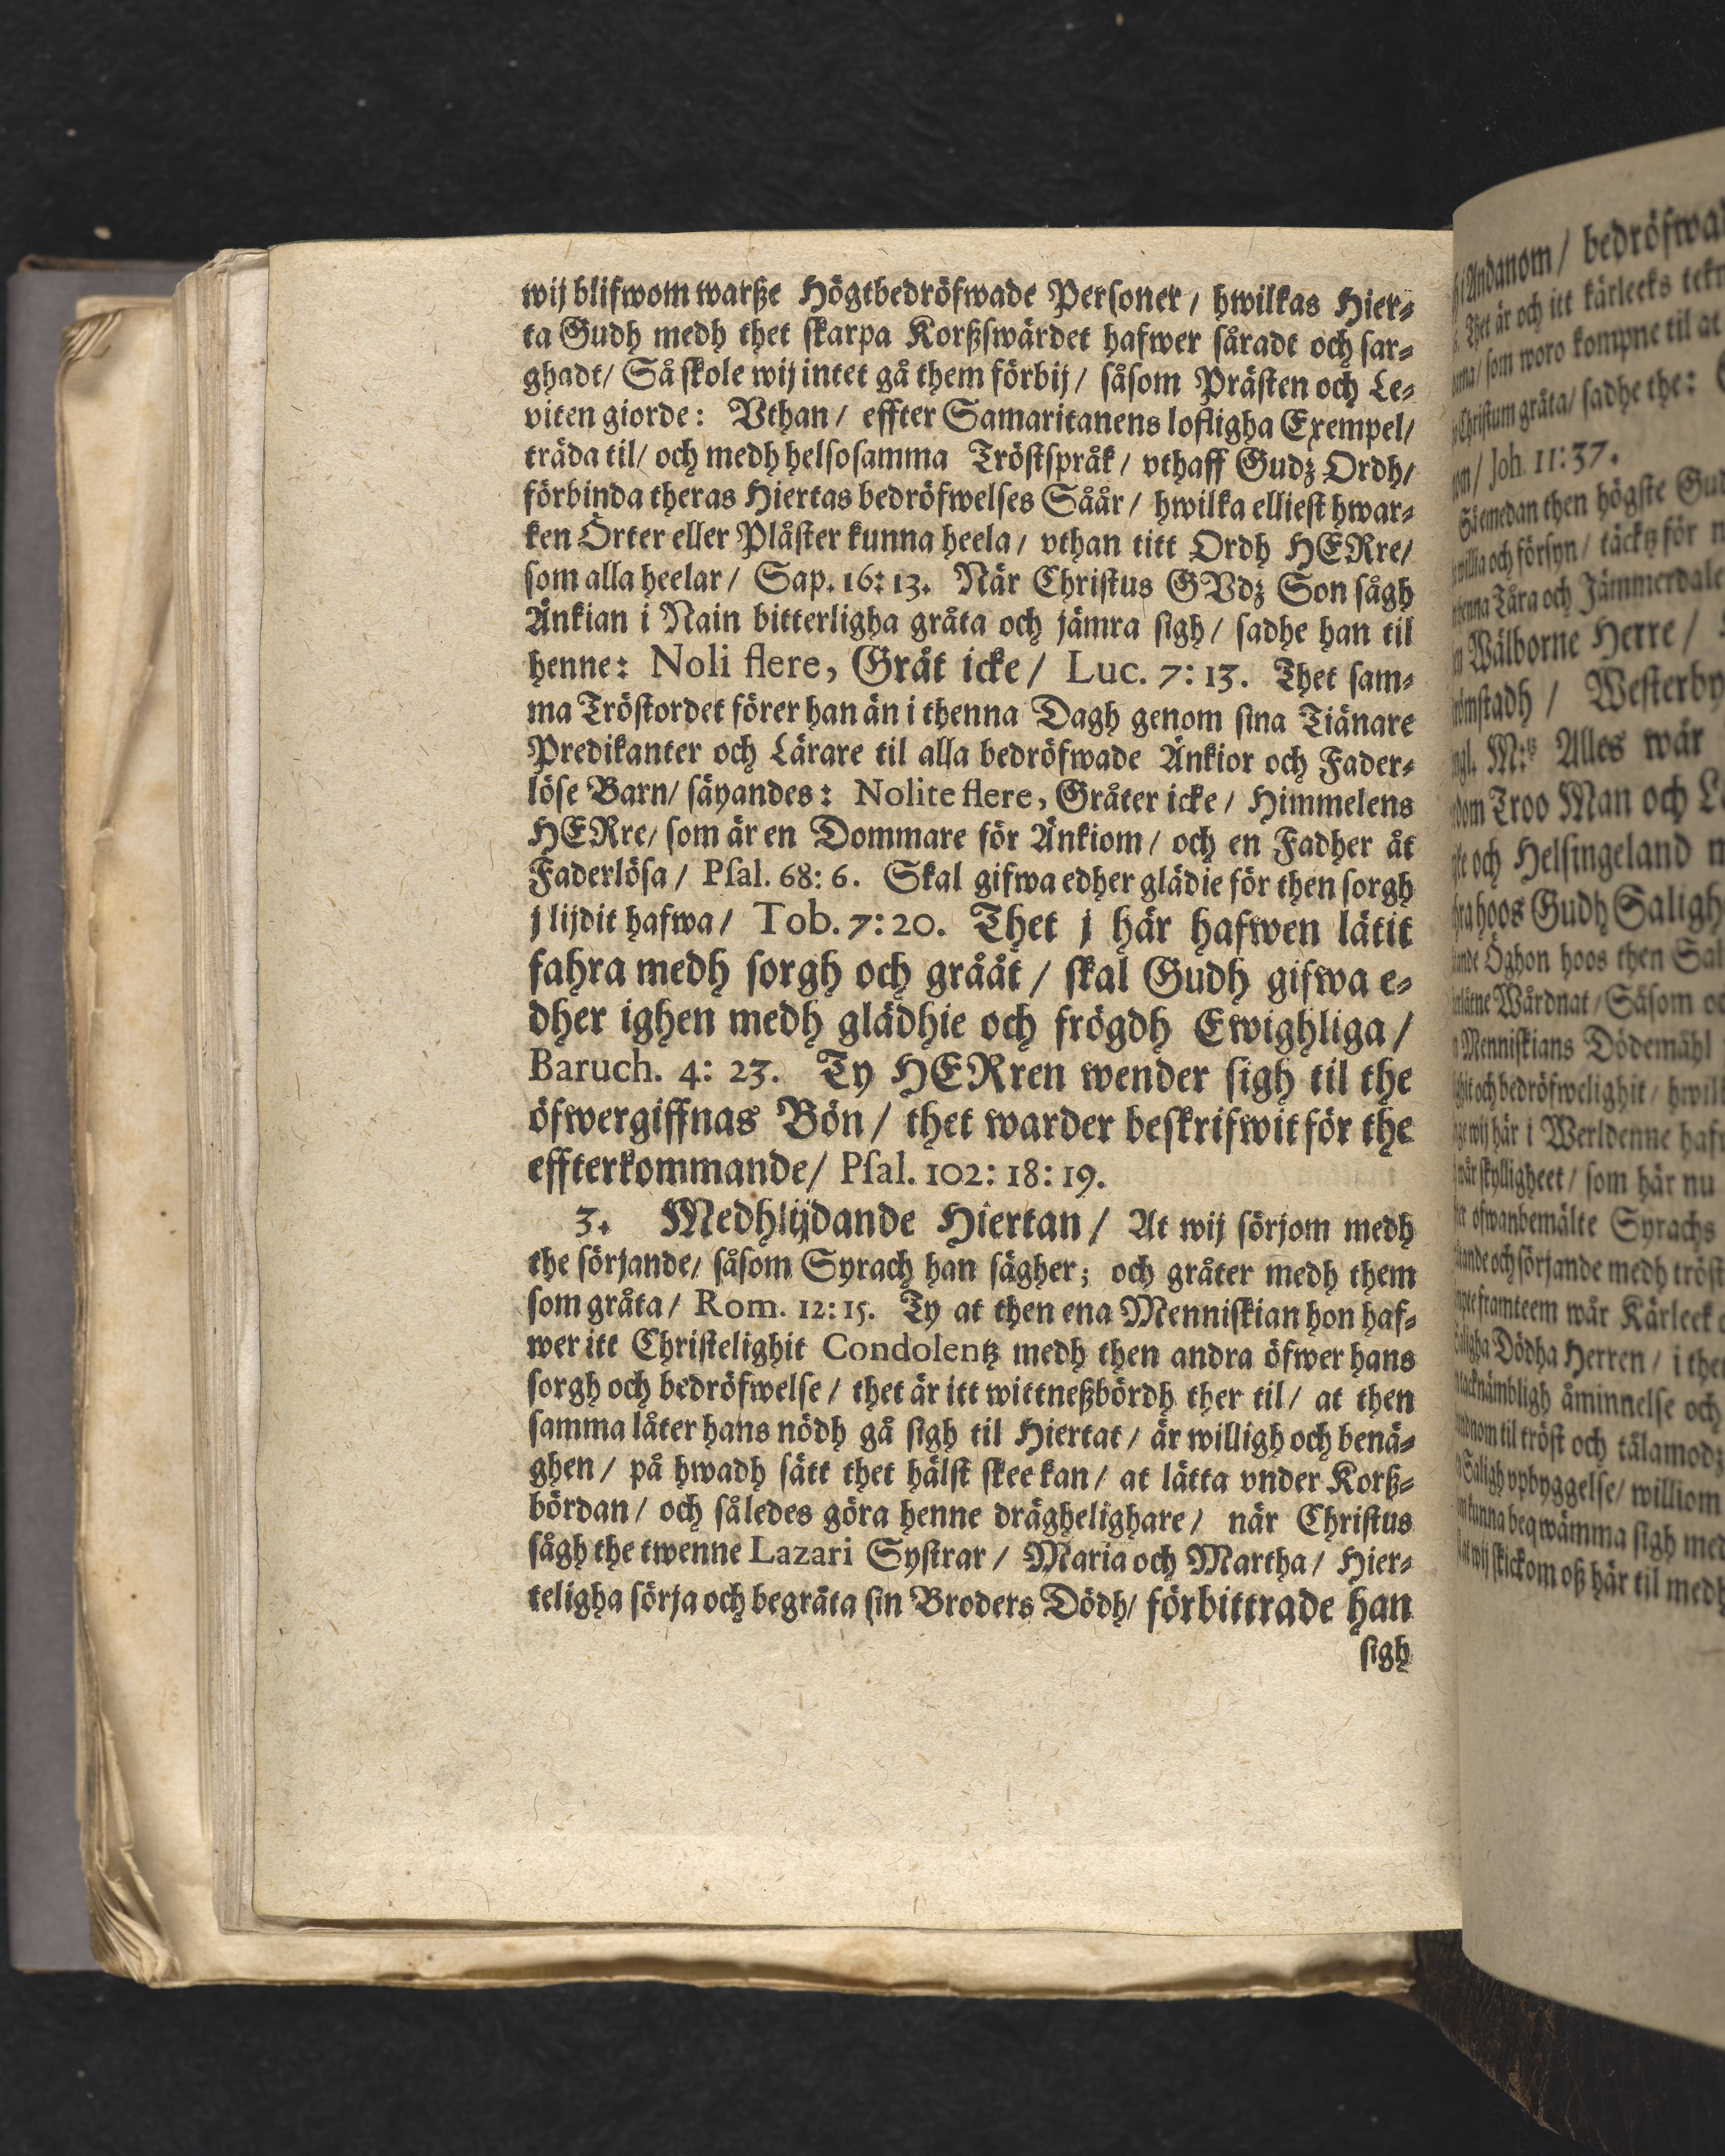 wij blifwom warße Högtbedröfwade Perſoner / hwilkas Hier⸗
ta Gudh medh thet ſkarpa Korßſwärdet hafwer ſåradt och ſar⸗
ghadt / Så ſkole wij intet gå them förbij / ſåſom Präſten och Le⸗
viten giorde: Vthan / effter Samaritanens lofligha Exempel /
träda til / och medh helſoſamma Tröſtſpråk / vthaff Gudz Ordh /
förbinda theras Hiertas bedröfwelſes Såår / hwilka ellieſt hwar⸗
ken Örter eller Plåſter kunna heela / vthan titt Ordh HERre /
ſom alla heelar / Sap. 16: 13. När Chriſtus GVdz Son ſågh
Änkian i Nain bitterligha gråta och jämra ſigh / ſadhe han til
henne: Noli flere, Gråt icke / Luc. 7: 13. Thet ſam⸗
ma Tröſtordet förer han än i thenna Dagh genom ſina Tiänare
Predikanter och Lärare til alla bedröfwade Änkior och Fader⸗
löſe Barn / ſäyandes: Nolite flere, Gråter icke / Himmelens
HERre / ſom är en Dommare för Änkiom / och en Fadher åt
Faderlöſa / Pſal. 68: 6. Skal gifwa edher glädie för then ſorgh
j lijdit hafwa / Tob. 7: 20. Thet j här hafwen lätit
fahra medh ſorgh och grååt / ſkal Gudh gifwa e⸗
dher ighen medh glädhie och frögdh Ewighliga /
Baruch. 4: 23. Ty HERren wender ſigh til the
öfwergiffnas Bön / thet warder beſkrifwit för the
effterkommande / Pſal. 102: 18: 19.
3. Medhlijdande Hiertan / At wij ſörjom medh
the ſörjande / ſåſom Syrach han ſägher; och gråter medh them
ſom gråta / Rom. 12: 15. Ty at then ena Menniſkian hon haf⸗
wer itt Chriſtelighit Condolentz medh then andra öfwer hans
ſorgh och bedröfwelſe / thet är itt wittneßbördh ther til / at then
ſamma låter hans nödh gå ſigh til Hiertat / är willigh och benä⸗
ghen / på hwadh ſätt thet hälſt ſkee kan / at lätta vnder Korß⸗
bördan / och ſåledes göra henne drägheligare / när Chriſtus
ſågh the twenne Lazari Syſtrar / Maria och Martha / Hier⸗
teligha ſörja och begråta ſin Broders Dödh / förbittrade han
ſigh
Andanom / bedröfwa
Thet är och itt kärleeks
ſom woro kompne til at
Chriſtum gråta / ſadhe the:
Joh. 11: 37.
emedan then högſte
och förſyn / täcktz för
Tåra och Jämmerdale
Wälborne Herre /
Weſterby
M:tz Alles wår
Troo Man och
och Helſingeland
hoos Gudh Saligh
Öghon hoos then
Wårdnat / Såſom
Menniſkians Dödemåhl
och bedröfwelighit /
wij här i Werldenne
ſkylligheet / ſom här nu
ofwanbemälte Syrachs
och ſörjande medh
framteem wår Kärleek
Dödha Herren / i
åminnelſe och
til tröſt och tålamodz
Saligh vpbyggelſe / williom
kunna beqwämma ſigh
wij ſkickom oß här til medh